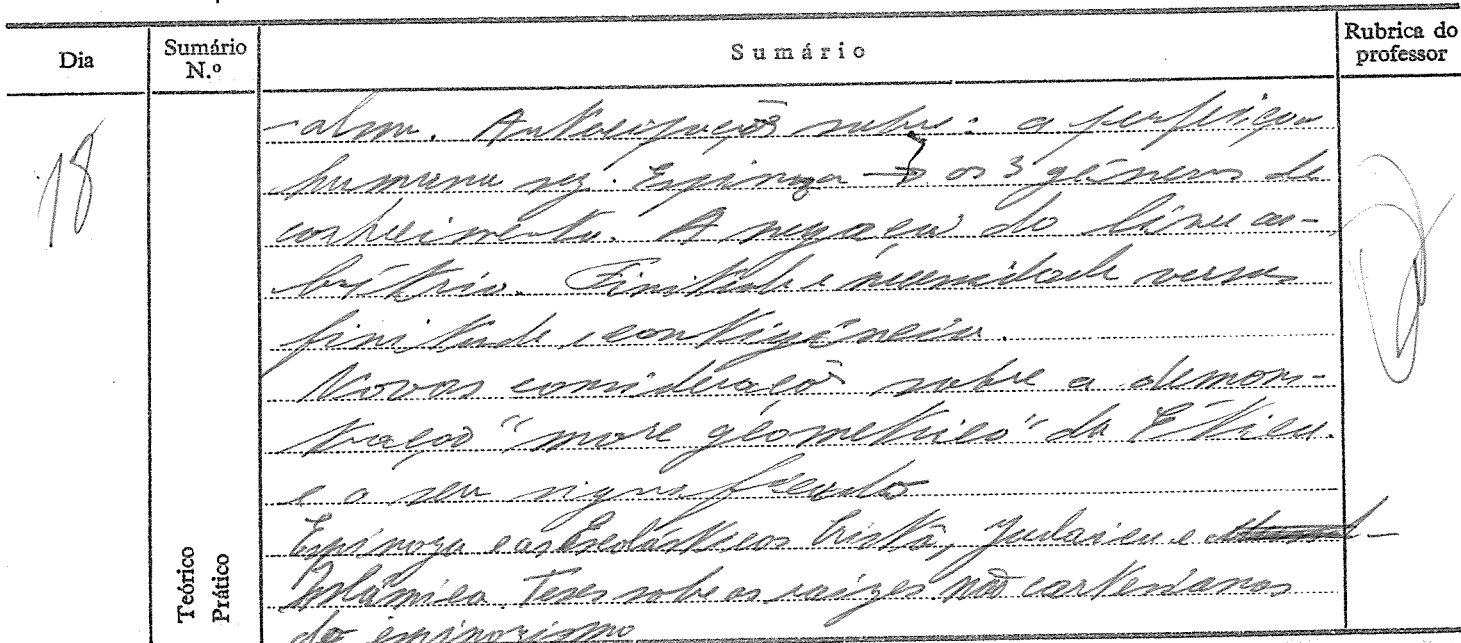 Dia
Sumário N.º
Sumário
Rubrica do professor
18
-alma. Antecipação sobre: a perfeição
humana seg. Espinoza → os 3 géneros de
conhecimento. A negação do livre ar-
bítrio. Finitude e necessidade versus
finitude e contigência.
Novas considerações sobre a demons-
tração "more géometrico" da Ética.
e o seu significado
Espinoza e as Escolásticas Cristã, Judaica e
Islâmica. Teses sobre as raízes não cartesianas
do espinozismo
Teórico
Prático